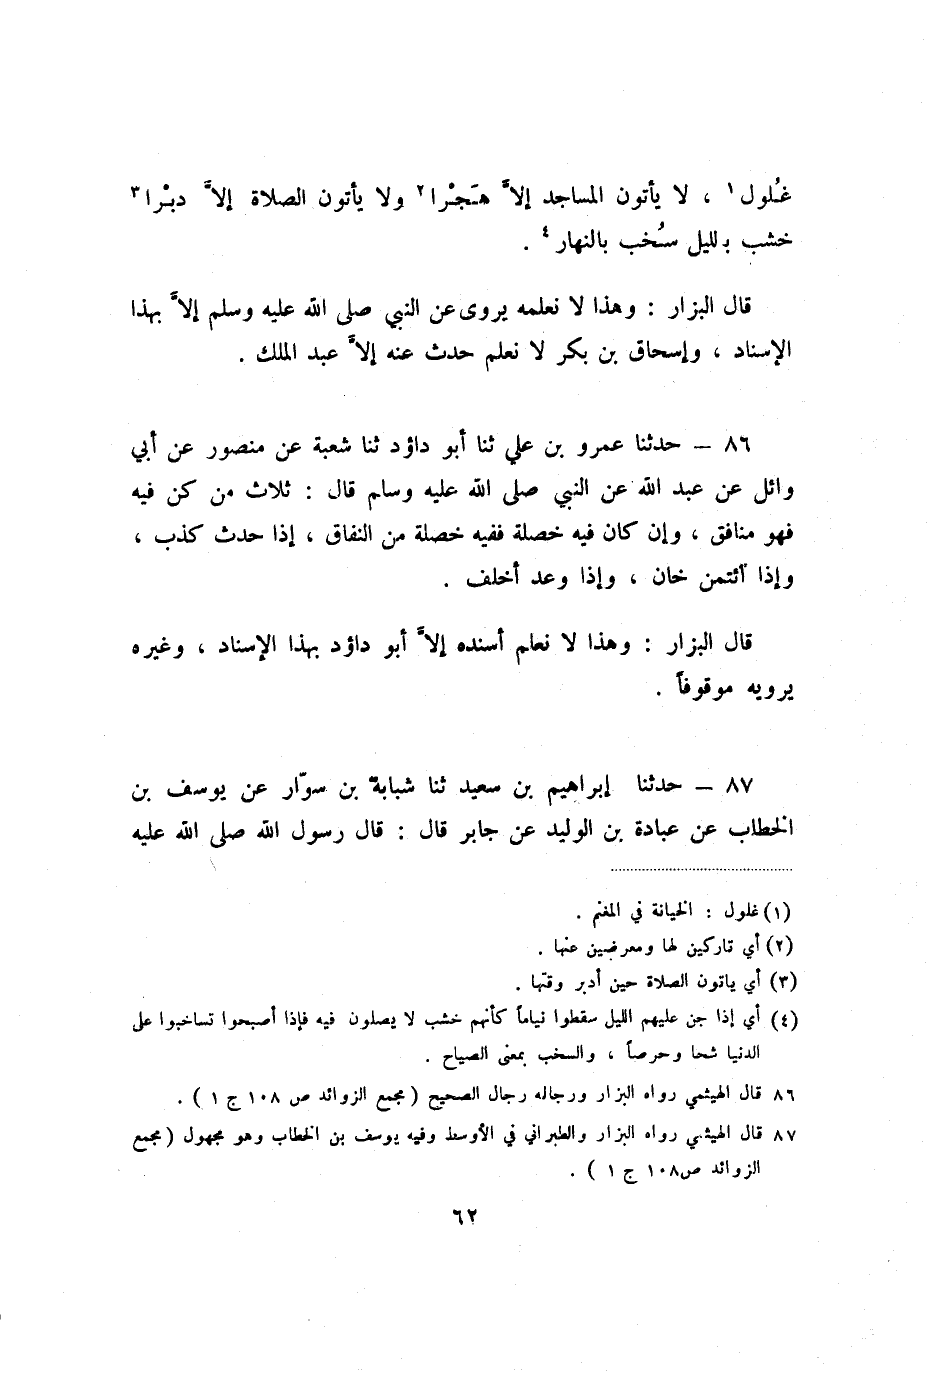 غُلول١ ، لا يأتون المساجد إلاَّ هَجْرا٢ ولا يأتون الصلاة إلاَّ دبْرا٣
خشب بالليل سُخب بالنهار٤ .
قال البزار : وهذا لا نعلمه يروى عن النبي صلى الله عليه وسلم إلاَّ بهذا
الإسناد ، وإسحاق بن بكر لا نعلم حدث عنه إلاَّ عبد الملك .
٨٦ – حدثنا عمرو بن علي ثنا أبو داؤد ثنا شعبة عن منصور عن أبي
وائل عن عبد الله عن النبي صلى الله عليه وسلم قال : ثلاث من كن فيه
فهو منافق ، وإن كان فيه خصلة ففيه خصلة من النفاق ، إذا حدث كذب ،
وإذا ائتمن خان ، وإذا وعد أخلف .
قال البزار : وهذا لا نعلم أسنده إلاَّ أبو داؤد بهذا الإسناد ، وغيره
يرويه موقوفاً .
٨٧ – حدثنا إبراهيم بن سعيد ثنا شبابة بن سوّار عن يوسف بن
الخطاب عن عبادة بن الوليد عن جابر قال : قال رسول الله صلى الله عليه
(١) غلول : الخيانة في المغنم .
(٢) أي تاركين لها ومعرضين عنها .
(٣) أي ياتون الصلاة حين أدبر وقتها .
(٤) أي إذا جن عليهم الليل سقطوا نياماً كأنهم خشب لا يصلون فيه فإذا أصبحوا تساخبوا على
الدنيا شحا وحرصاً ، والسخب بمعنى الصياح .
٨٦ قال الهيثمي رواه البزار ورجاله رجال الصحيح ( مجمع الزوائد ص ١٠٨ ج ١ ) .
٨٧ قال الهيثمي رواه البزار والطبراني في الأوسط وفيه يوسف بن الخطاب وهو مجهول ( مجمع
الزوائد ص١٠٨ ج ١ ) .
٦٢